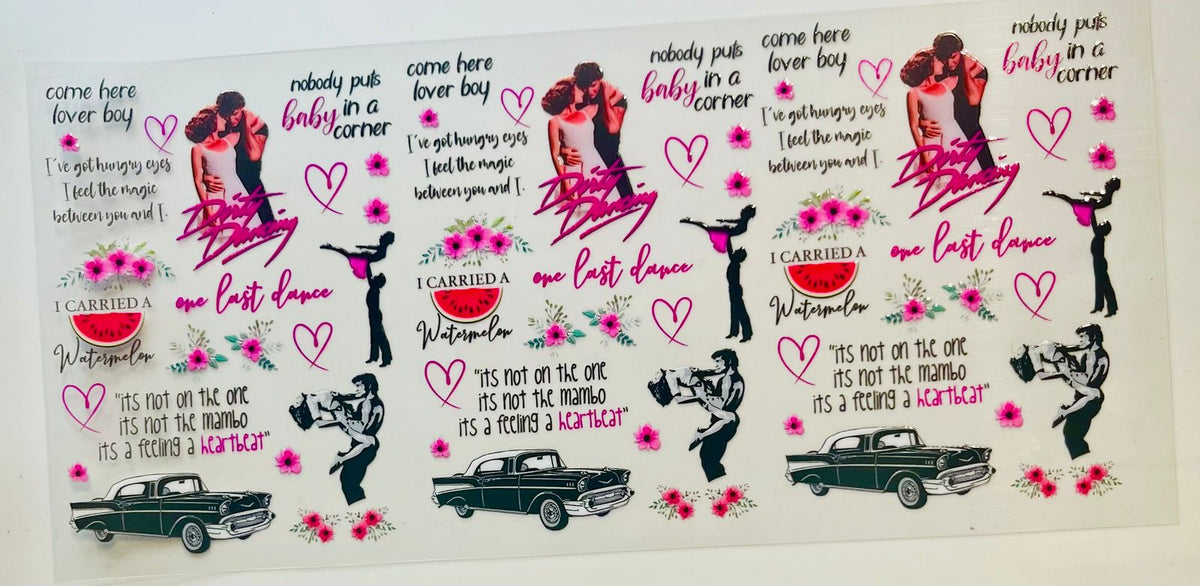 come here
lover boy
nobody puts
baby in a
corner
I've got hungry eyes
I feel the magic
between you and I.
Dirty
Dancing
I CARRIED A
Watermelon
one last dance
"its not on the one
its not the mambo
its a feeling a heartbeat"
come here
lover boy
nobody puts
baby in a
corner
I've got hungry eyes
I feel the magic
between you and I.
Dirty
Dancing
I CARRIED A
Watermelon
one last dance
"its not on the one
its not the mambo
its a feeling a heartbeat"
come here
lover boy
nobody puts
baby in a
corner
I've got hungry eyes
I feel the magic
between you and I.
Dirty
Dancing
I CARRIED A
Watermelon
one last dance
"its not on the one
its not the mambo
its a feeling a heartbeat"